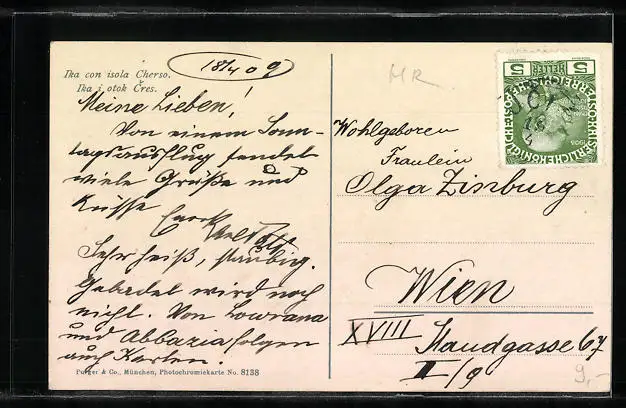 18/4 09
Ika con isola Cherso.
Ika i otok Čres.
Meine Lieben!
Von einem Sonn-
tagsausflug sendet
viele Grüße und
Küsse
Sehr heiß, staubig.
Gebadet wird noch
nicht. Von Lovrana
und Abbazia folgen
auch Karten.
Purger & Co., München, Photochromiekarte No. 8138
HR
5 HELLER 5
1908
Wohlgeboren
Fraulein
Olga Zinburg
Wien
XVIII Staudgasse 67
II/9
9,-